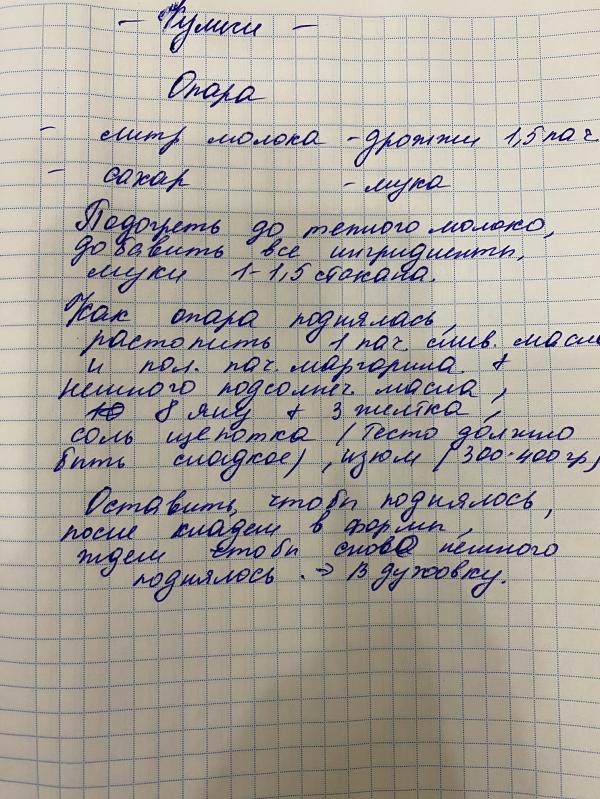 - Куличи -
Опара
- литр молока - дрожжи 1,5 пач.
- сахар - мука
Подогреть до теплого молоко,
добавить все ингридиенты,
муки 1-1,5 стакана.
Как опара поднялась,
растопить 1 пач слив. масла
и пол. пач. маргарина. +
немного подсолнеч. масла,
8 яиц + 3 желтка,
соль щепотка (Тесто должно
быть сладкое), изюм (300-400 гр)
Оставить, чтобы поднялось,
после кладем в формы,
ждем чтобы снова немного
поднялось. → В духовку.